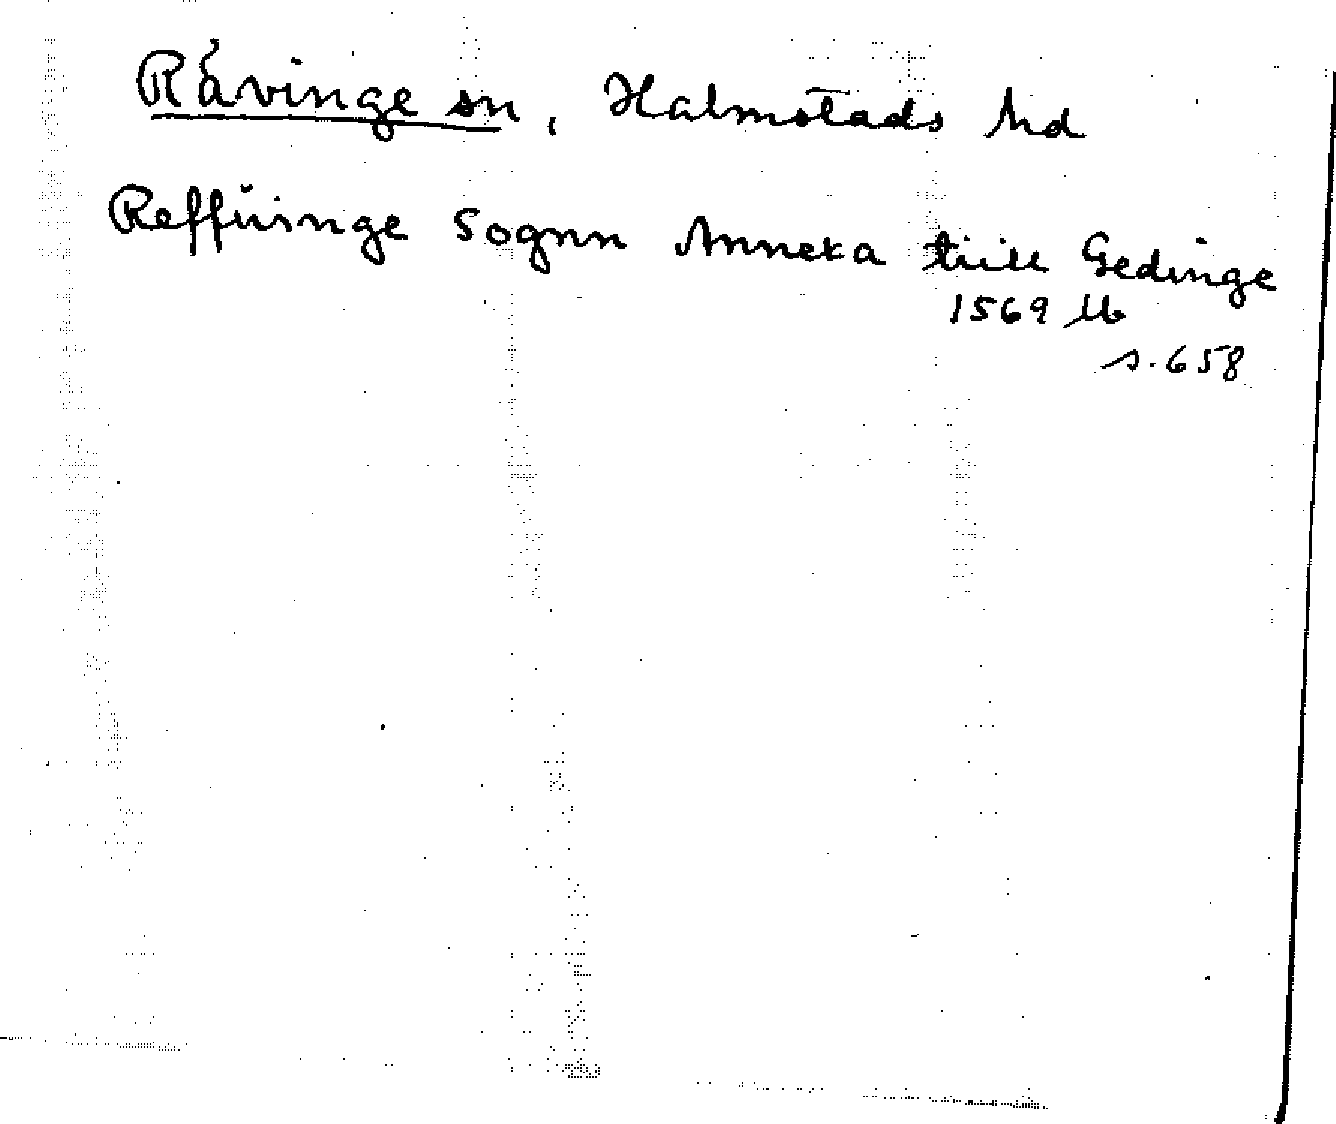 Råvinge sn, Halmstads hd
Reffüinge Sognn Annexa tiill Gedinge
1569 lb
s. 658